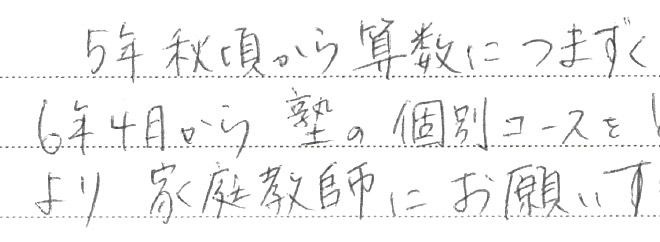 5年秋頃から算数につまずく
6年4月から 塾の個別コースを
より 家庭教師にお願いす